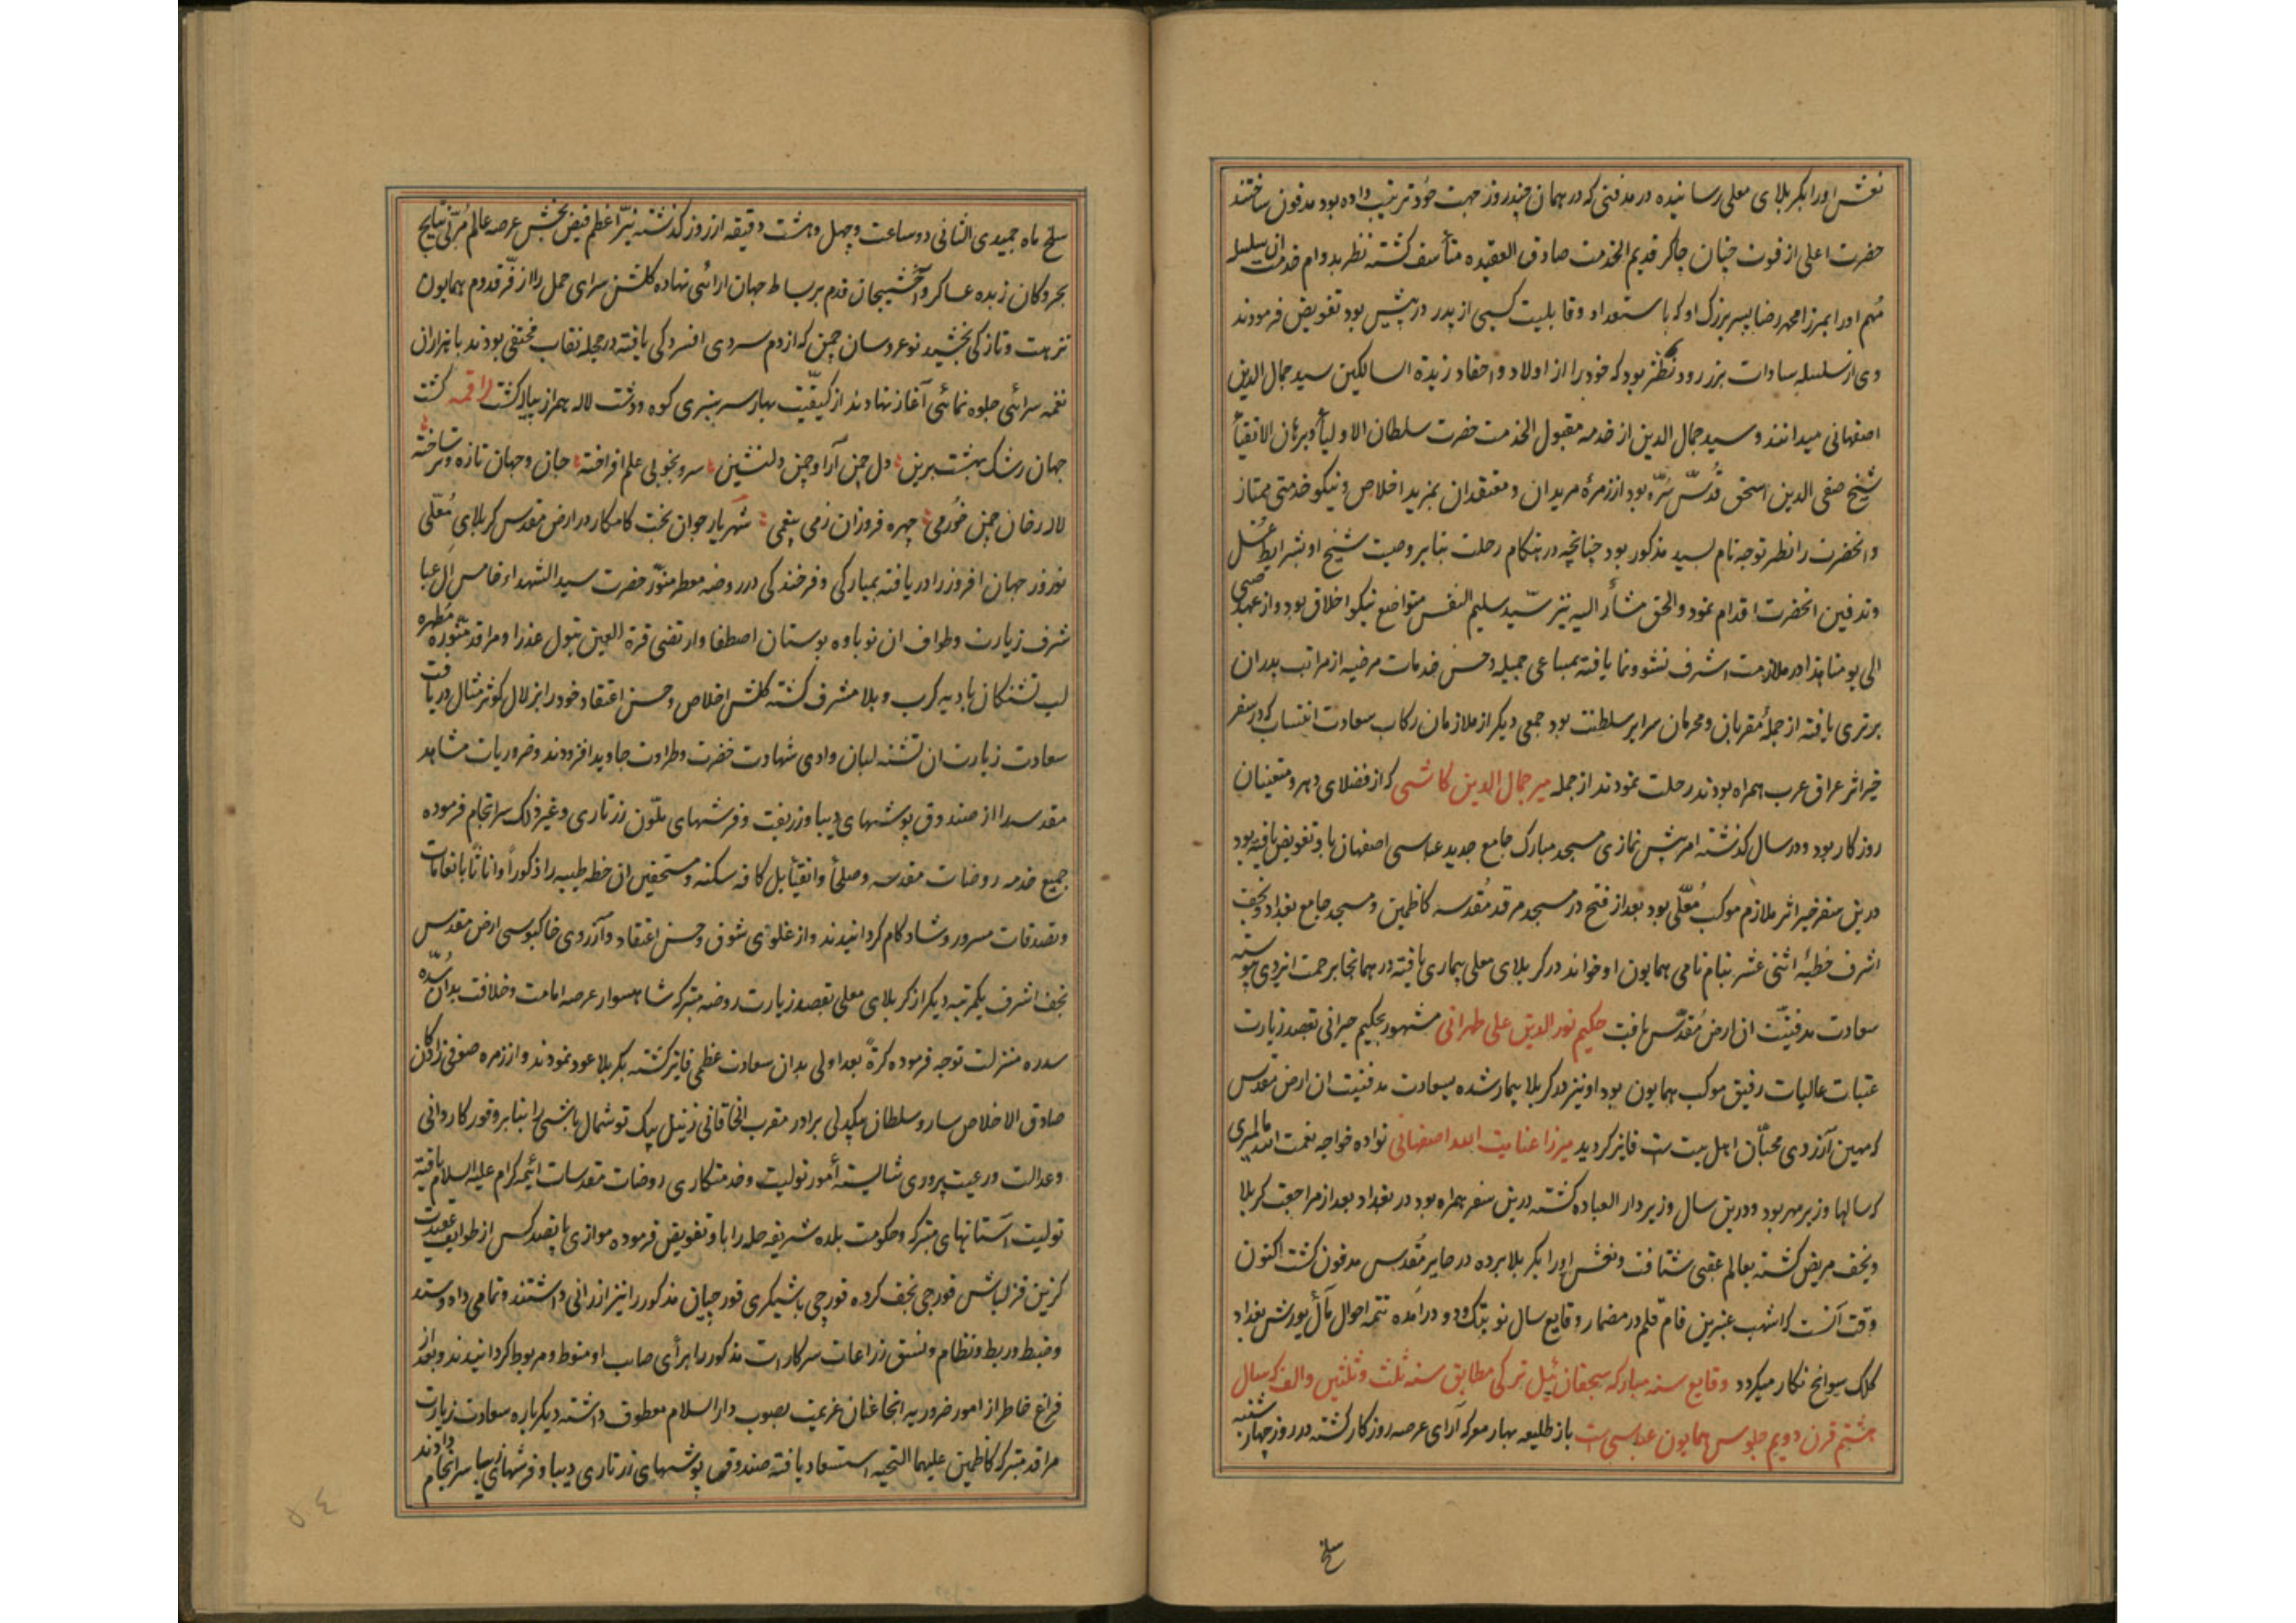 نعش او را بکربلای معلی رسانیده در مدفنی که در همان چند روز جهت خود ترتیب داده بود مدفون ساختند
حضرت اعلی از فوت چنان چاکر قدیم الخدمت صادق العقیده متأسف کشته نظر بدوام خدمت ان سلسله
مهم او را بمیرزا محمد رضا پسر بزرک او که باستعداد و قابلیت کسبی از پدر در پیش بود تفویض فرمودند
وی از سلسله سادات بود که خود را از اولاد و احفاد زبدة السالکین سید جمال الدین
اصفهانی میدانند و سید جمال الدین از خدمه مقبول الخدمت حضرت سلطان الاولیأ و برهان الاتقیأ
شیخ صفی الدین اسحق قُدّس سّره بود از زمرهٔ مریدان و معتقدان بمزید اخلاص و نیکو خدمتی ممتاز
و انحضرت را نظر توجه تام بسید مذکور بود چنانچه در هنکام رحلت بنا بر وصیت شیخ او بشرایط غُسل
و تدفین انحضرت اقدام نمود والحق مشأر الیه نیز سیّد سلیم النفس متواضع نیکو اخلاق بود و از عهد صبی
الی یومنا هذا در ملازمت اشرف نشو و نما یافته بمساعی جمیله و حسن خدمات مرضیه از مراتب پدران
برتری یافته از جملهٔ مقربان و محرمان سرایر سلطنت بود جمعی دیکر از ملازمان رکاب سعادت انتساب که در سفر
خیر اثر عراق عرب همراه بودند رحلت نمودند از جمله میر جمال الدین کاشی که از فضلای دهر و متعینان
روزکار بود و در سال کذشته امر پیش نمازی مسجد مبارک جامع جدید عباسی اصفهان باو تفویض یافته بود
درین سفر خیر اثر ملازم موکب مُعلّی بود بعد از فتح در مسجد مرقد مُقدسه کاظمین و مسجد جامع بغداد و نجف
اشرف خطبهٔ اثنی عشر بنام نامی همایون او خواند در کربلای معلی بیماری یافته در همانجا برحمت ایزدی پیوسته
سعادت مدفنیّت ان ارض مُقدّس یافت حکیم نور الدین علی طهرانی مشهور بحکیم حیرانی بقصد زیارت
عتبات عالیات رفیق موکب همایون بود او نیز در کربلا بیمار شده بسعادت مدفنیت ان ارض مقدس
که مهین آرزوی محبّان اهل بیت است فایز کردید میرزا عنایت الله اصفهانی نواده خواجه نعمت الله
که سالها وزیر مهر بود و درین سال وزیر دار العباده کشته درین سفر همراه بود در بغداد بعد از مراجعت کربلا
و نجف مریض کشته بعالم عقبی شتافت و نعش او را بکربلا برده در حایر مُقدس مدفون کشت اکنون
وقت آنست که اشهب عنبرین فام قلم در مضمار وقایع سال نو بتک و دو درآمده تتمه احوال مآل یورش بغداد
کلک سوانح نکار میکردد وقایع سنه مبارکه سیچقان ئیل ترکی مطابق سنه ثلث و ثلثین و الف که سال
هشتم قرن دویم جلوس همایون عباسی است باز طلیعه بهار معرکه آرای عرصه روزکار کشته در روز چهارشنبه
سلخ
سلخ ماه جمیدی الثانی دو ساعت و چهل و هشت دقیقه از روز کذشته نیّر اعظم فیض بخش عرصه عالم مُربّی نتایج
بحر و کان زبده عساکر و آخشیجان قدم بر بساط جهان ارائی نهاده کلشن سرای حمل را از فّر قدوم همایون
نزهت و تازکی بخشید نوعروسان چمن که از دم سردی افسردکی یافته در حجله نقاب مختفی بودند با هزاران
نغمه سرائی جلوه نمائی آغاز نهادند از کیفیّت بهار سرسبزی کوه و دشت لاله همراز پیاله کشت لراقمه کشت
جهان رشک بهشت برین دل چمن آرا و چمن دلنشین سرو بخوبی علم افراخته جان و جهان تازه و تر ساخته
لاله رخان چمن خُرمی چهره فروزان ز می بیغمی شهریار جوان بخت کامکار در ارض مقدس کربلای مُعّلی
نوروز جهان افروز را دریافته بمبارکی و فرخندکی در روضه معطر منوّر حضرت سید الشهداء خامس ال عبا
شرف زیارت و طواف ان نوباوه بوستان اصطفا و ارتضی قرة العین بتول عذرا و مراقد منوّره مُطهره
لب تشنکان بادیه کرب و بلا مشرف کشته کلشن اخلاص و حسن اعتقاد خود را بزلال کوثر مثال دریافت
سعادت زیارت ان تشنه لبان وادی شهادت خضرت و طراوت جاوید افزودند و ضروریات مشاهد
مقدسه را از صندوق پوشهای دیبا و زربفت و فرشهای ملّون زرتاری و غیر ذلک سرانجام فرموده
جمیع خدمه روضات مقدسه و صلحأ و اتقیأ بل کافه سکنه و مستحقین ان خطه طیبه را ذکوراً و اناثاً بانعامات
و تصدقات مسرور و شادکام کردانیدند و از غلوّی شوق و حسن اعتقاد و آرزوی خاکبوسی ارض مقدس
نجف اشرف یکمرتبه دیکر از کربلای معلی بقصد زیارت روضه متبرکه شاهسوار عرصه امامت و خلافت بدان سُدّه
سدره منزلت توجه فرموده کرةً بعد اولی بدان سعادت عظمی فایز کشته بکربلا عود نمودند و از زمره صوفی زادکان
صادق الاخلاص سارو سلطان بیکدلی برادر مقرب الخاقانی زینل بیک توشمال باشی را بنا بر وفور کاردانی
و عدالت و رعیت پروری شایسته اُمور تولیت و خدمتکاری روضات مقدسات ائیمه کرام علیه السلام یافته
تولیت آستانهای متبرکه و حکومت بلده شریفه حله را باو تفویض فرموده موازی پانصد کس از طوایف عقیدت
کزین قزلباش قورچی نجف کرده قورچی باشیکری قورچیان مذکور را نیز ارزانی داشتند و تمامی داد و ستد
و ضبط و ربط و نظام و نسق زراعات سرکارات مذکور را برأی صایب او منوط و مربوط کردانیدند و بعد از
فراغ خاطر از امور ضروریه انجا عنان عزیمت بصوب دار السلام معطوف داشته دیکرباره سعادت زیارت
مراقد متبرکه کاظمین علیهما التحیه استسعاد یافته صندوق پوشهای زرتاری دیبا و فرشهای زیبا سرانجام دادند
٥٤